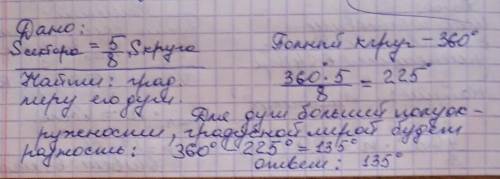 Дано:
Sсектора = 5/8 Sкруга
Полный круг – 360°
Найти: град. меру его дуги.
360° · 5 / 8 = 225°
Для дуги большей полуок-
ружности, градусной мерой будет
разность: 360° - 225° = 135°
ответ: 135°